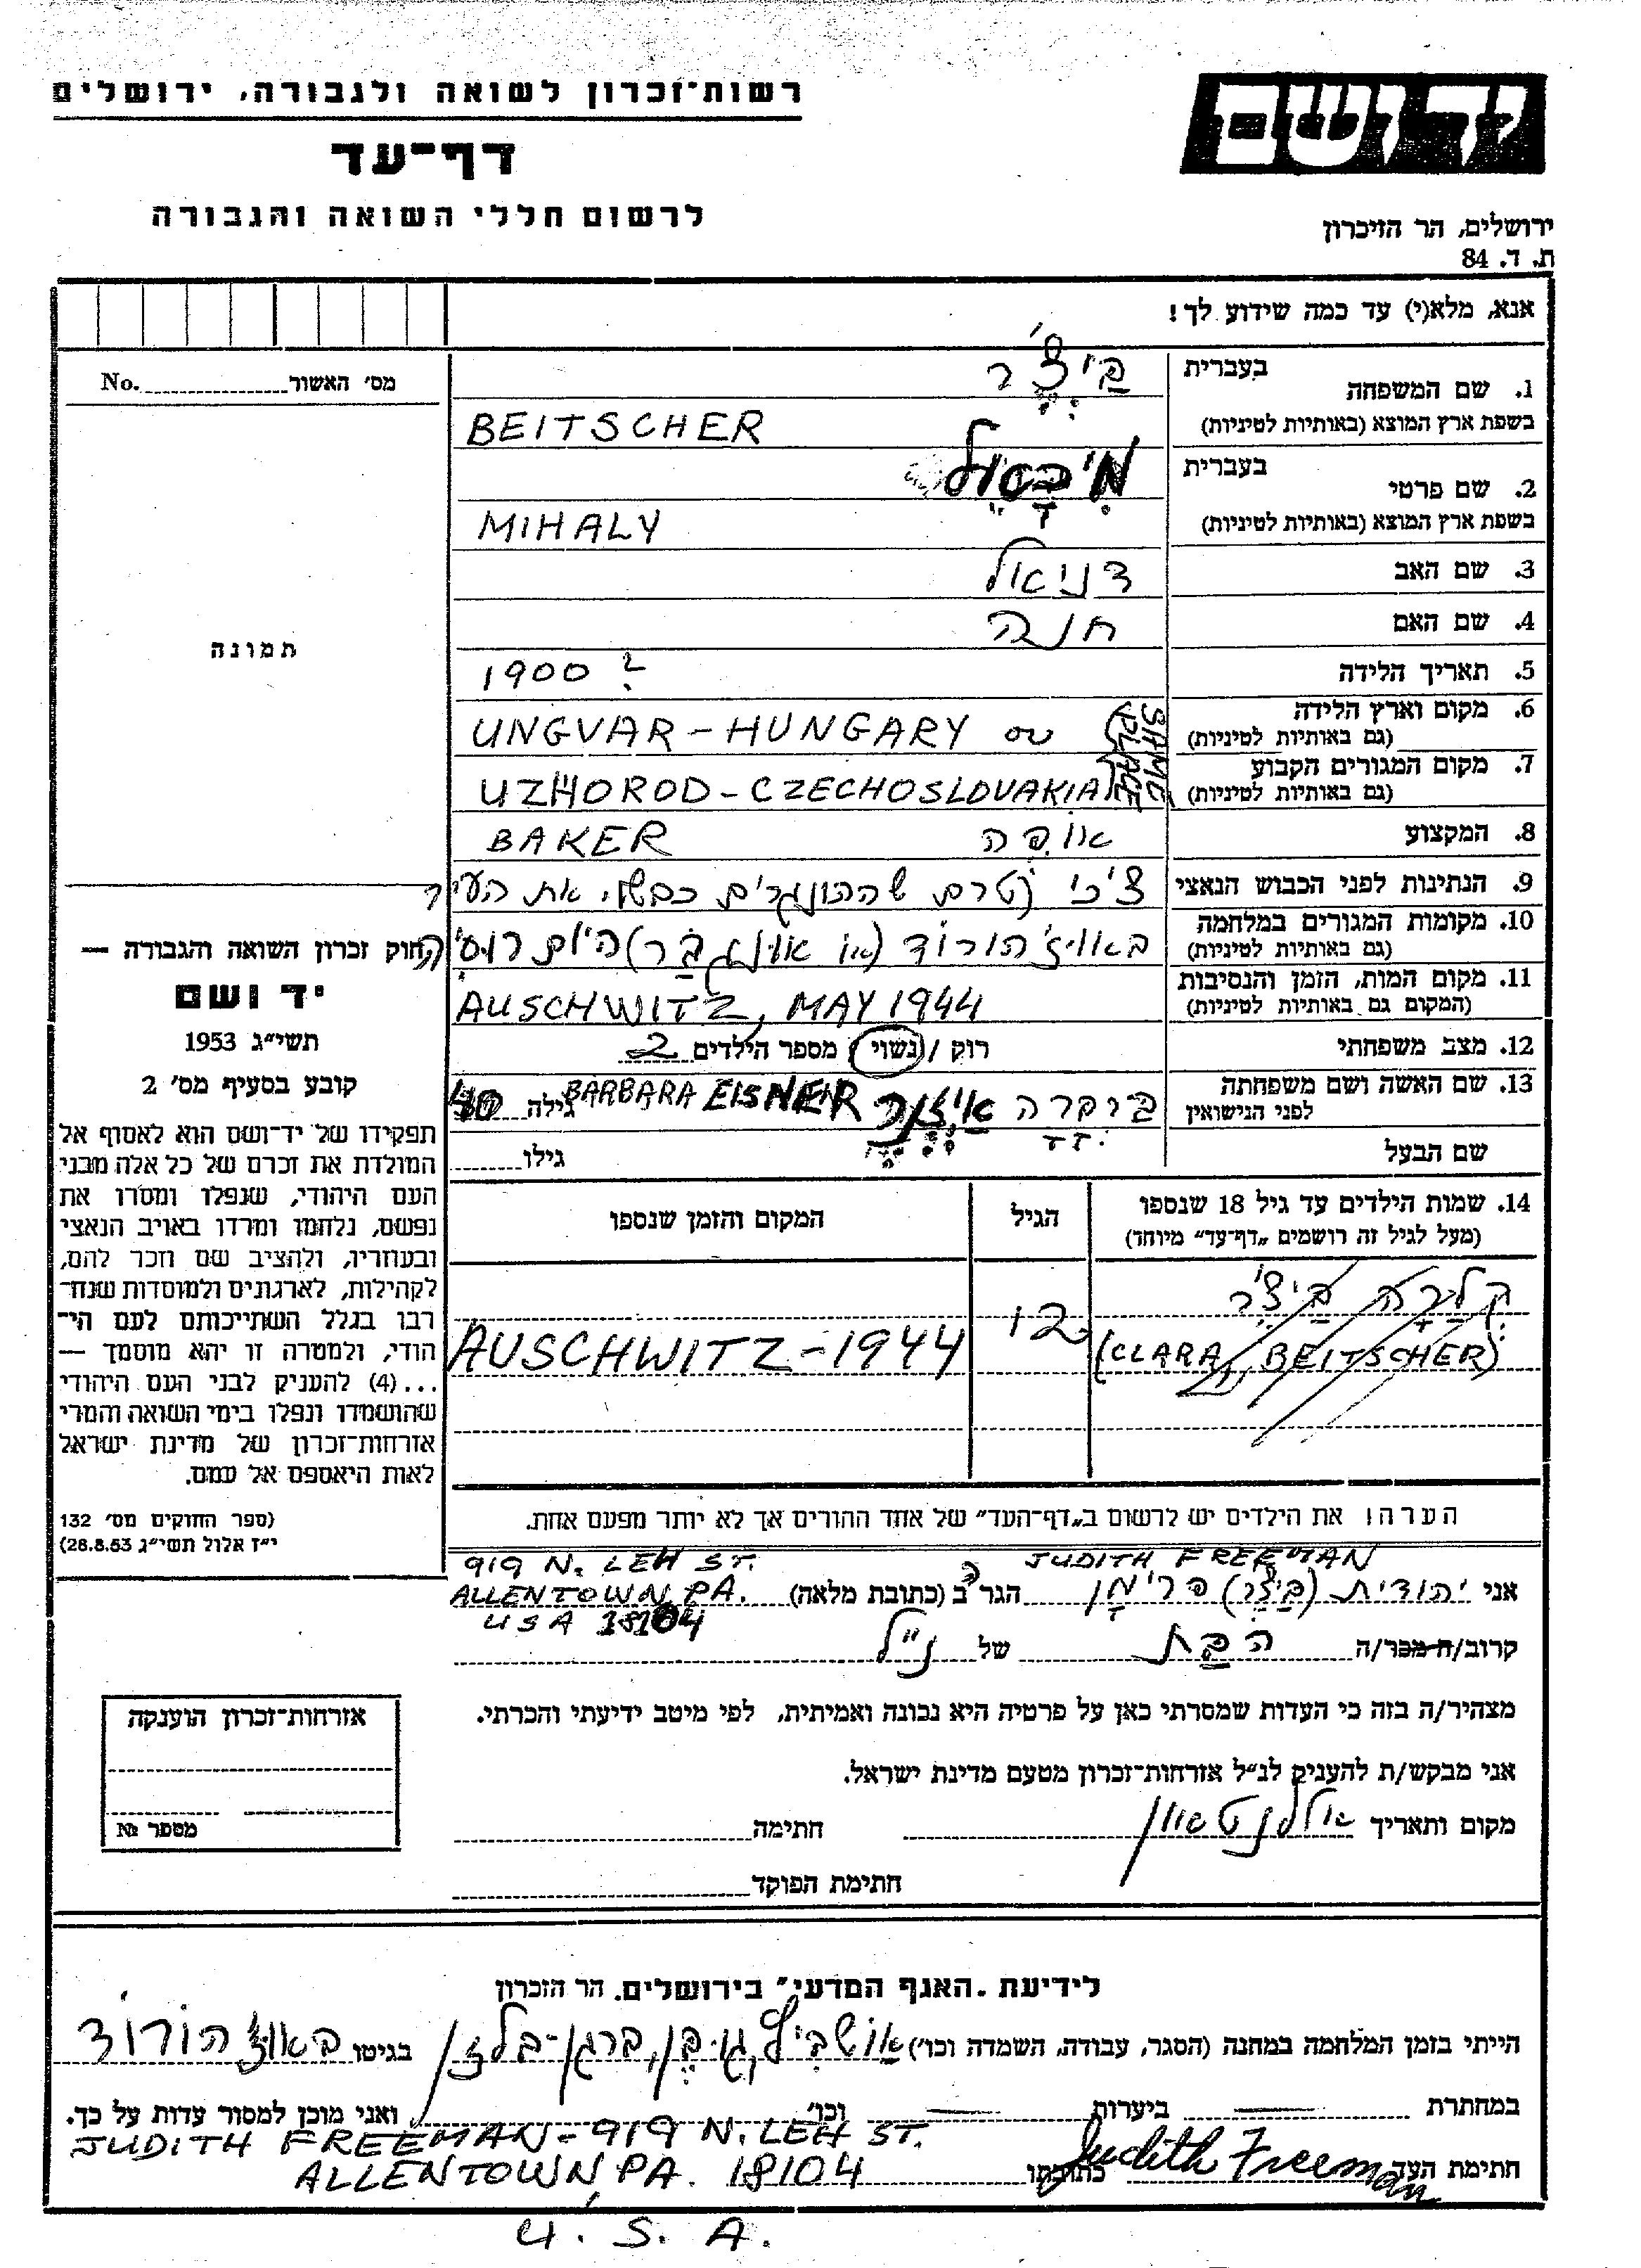 רשות־זכרון לשואה ולגבורה, ירושלים
דף־עד
לרשום חללי השואה והגבורה
יד ושם
ירושלים, הר הזיכרון
ת. ד. 84
אנא, מלא(י) עד כמה שידוע לך!
מס׳ האשור No.
תמונה
1. שם המשפחה בעברית בײַצֶ׳ר
בשפת ארץ המוצא (באותיות לטיניות) BEITSCHER
2. שם פרטי בעברית
בשפת ארץ המוצא (באותיות לטיניות) MIHALY
3. שם האב דניאל
4. שם האם חנה
5. תאריך הלידה 1900 ?
6. מקום וארץ הלידה (גם באותיות לטיניות) UNGVAR - HUNGARY or
7. מקום המגורים הקבוע (גם באותיות לטיניות) UZHOROD - CZECHOSLOVAKIA
SAME PLACE
8. המקצוע אופה BAKER
9. הנתינות לפני הכבוש הנאצי צ׳כי (טרם שההונגרים כבשו את העיר
10. מקומות המגורים במלחמה (גם באותיות לטיניות) באוז׳הורוד (או אונגבר) היום רוסיה
11. מקום המות, הזמן והנסיבות (המקום גם באותיות לטיניות) AUSCHWITZ, MAY 1944
12. מצב משפחתי רוק / נשוי / מספר הילדים 2
13. שם האשה ושם משפחתה לפני הנישואין ברברה אײַזנר BARBARA EISNER גילה 40
שם הבעל גילו
14. שמות הילדים עד גיל 18 שנספו הגיל המקום והזמן שנספו
(מעל לגיל זה רושמים „דף־עד״ מיוחד)
קלרה בײַצֶ׳ר
(CLARA BEITSCHER) 12 AUSCHWITZ - 1944
חוק זכרון השואה והגבורה —
יד ושם
תשי״ג 1953
קובע בסעיף מס׳ 2
תפקידו של יד־ושם הוא לאסוף אל
המולדת את זכרם של כל אלה מבני
העם היהודי, שנפלו ומסרו את
נפשם, נלחמו ומרדו באויב הנאצי
ובעוזריו, ולהציב שם וזכר להם,
לקהילות, לארגונים ולמוסדות שנח־
רבו בגלל השתייכותם לעם הי־
הודי, ולמטרה זו יהא מוסמך —
...(4) להעניק לבני העם היהודי
שהושמדו ונפלו בימי השואה והמרי
אזרחות־זכרון של מדינת ישראל
לאות היאספם אל עמם.
(ספר החוקים מס׳ 132
י״ז אלול תשי״ג 28.8.53)
הערה! את הילדים יש לרשום ב„דף־העד״ של אחד ההורים אך לא יותר מפעם אחת.
JUDITH FREEMAN 919 N. LEH ST.
אני יהודית (בײַצֶ׳ר) פרימן הגרה ב (כתובת מלאה) ALLENTOWN, PA.
USA 18104
קרוב/ה מכר/ה הבת של נ״ל
מצהיר/ה בזה כי העדות שמסרתי כאן על פרטיה היא נכונה ואמיתית, לפי מיטב ידיעתי והכרתי.
אני מבקש/ת להעניק לנ״ל אזרחות־זכרון מטעם מדינת ישראל.
מקום ותאריך אלנטאון חתימה
חתימת הפוקד
אזרחות־זכרון הוענקה
מספר №
לידיעת „האגף המדעי״ בירושלים. הר הזכרון
הייתי בזמן המלחמה במחנה (הסגר, עבודה, השמדה וכו׳) אושביץ, גובן, ברגן-בלזן בגיטו באוז׳הורוד
במחתרת ביערות וכו׳ ואני מוכן למסור עדות על כך.
JUDITH FREEMAN - 919 N. LEH ST.
חתימת העד Judith Freeman כתובתו ALLENTOWN, PA. 18104
U. S. A.